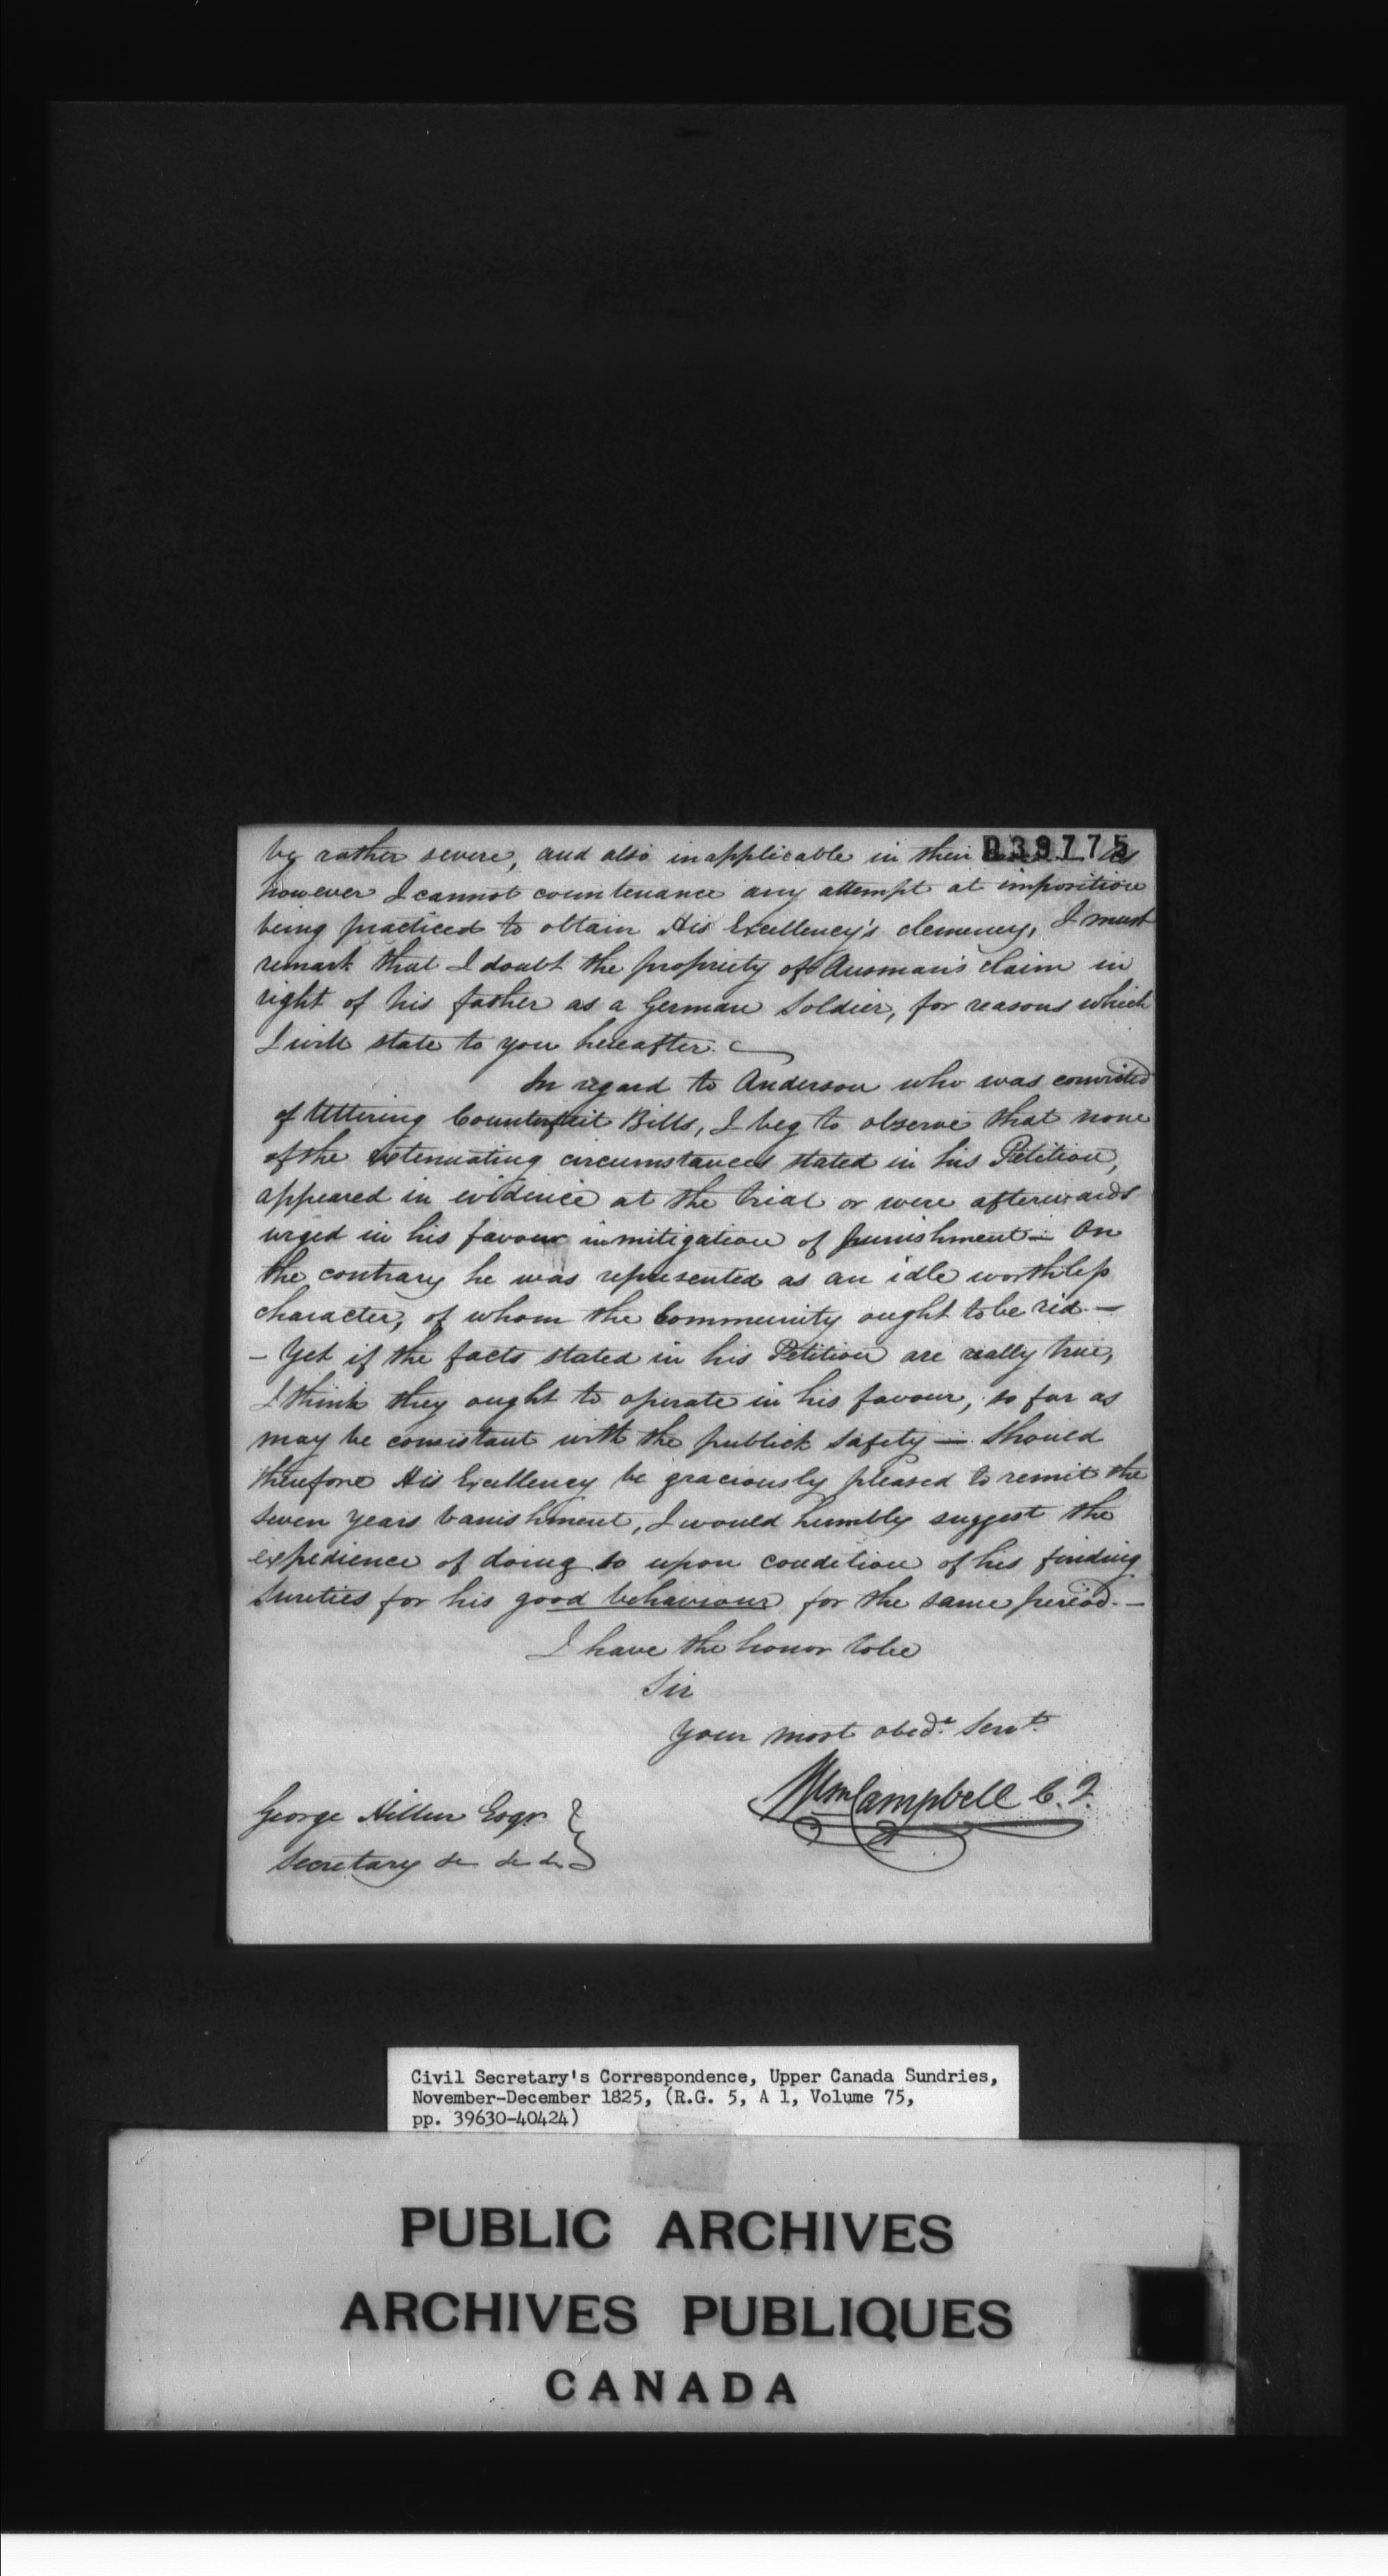 be rather severe, and also inapplicable in their
039775
As
however I cannot countenance any attempt at imposition
being practiced to obtain His Excellency's clemency, I must
remark that I doubt the propriety of Ausman's claim in
right of his father as a German Soldier, for reasons which
I will state to you hereafter.
In regard to Anderson who was convicted
of Uttering Counterfeit Bills, I beg to observe that none
of the extenuating circumstances stated in his Petition,
appeared in evidence at the trial or were afterwards
urged in his favour in mitigation of punishment — On
the contrary he was represented as an idle worthless
character, of whom the Community ought to be rid. —
— Yet if the facts stated in his Petition are really true,
I think they ought to operate in his favour, so far as
may be consistant with the publick safety — Should
therefore His Excellency be graciously pleased to remit the
seven years banishment, I would humbly suggest the
expedience of doing so upon condition of his finding
Sureties for his good behaviour for the same period. —
I have the honor to be
Sir
Your most obedt. Servt.
Wm Campbell C. J.
George Hillier Esqr
Secretary &c &c &c
Civil Secretary's Correspondence, Upper Canada Sundries,
November-December 1825, (R.G. 5, A 1, Volume 75,
pp. 39630-40424)
PUBLIC ARCHIVES
ARCHIVES PUBLIQUES
CANADA